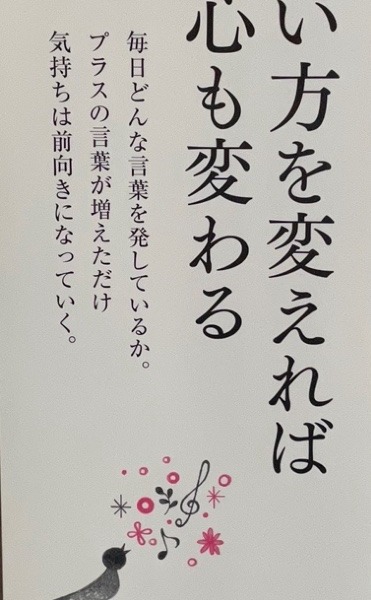 い方を変えれば
心も変わる
毎日どんな言葉を発しているか。
プラスの言葉が増えただけ
気持ちは前向きになっていく。